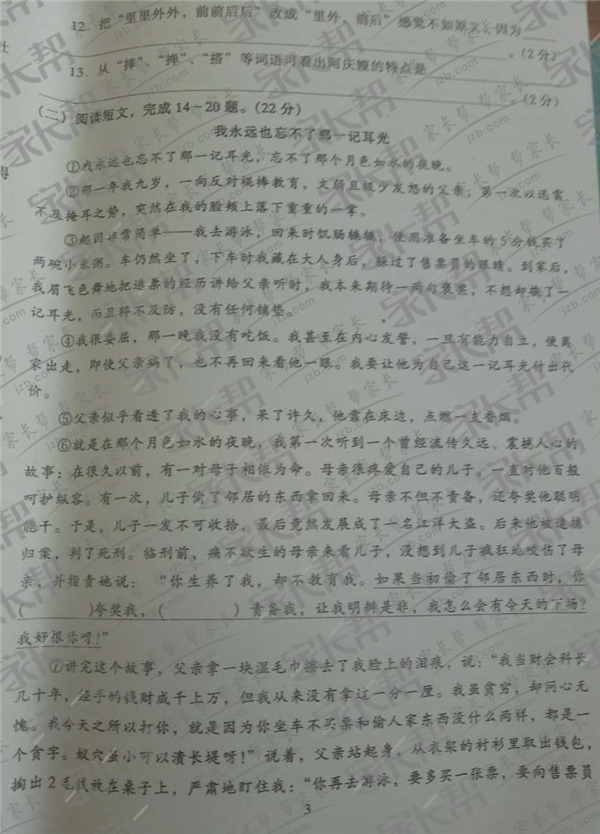 12. 把“里里外外，前前后后”改成“里外，前后”感觉不如原文，因为
。(2分)
13. 从“摔”、“掸”、“搭”等词语可看出阿庆嫂的特点是
。(2分)
（二）阅读短文，完成14－20题。(22分)
我永远也忘不了那一记耳光
①我永远也忘不了那一记耳光，忘不了那个月色如水的夜晚。
②那一年我九岁，一向反对棍棒教育，文弱且极少发怒的父亲，第一次以迅雷
不及掩耳之势，突然在我的脸颊上落下重重的一掌。
③起因非常简单——我去游泳，回来时饥肠辘辘，便用准备坐车的5分钱买了
两碗小米粥。车仍然坐了，下车时我藏在大人身后，躲过了售票员的眼睛。到家后，
我眉飞色舞地把逃票的经历讲给父亲听时，我本来期待一两句褒奖，不想却挨了一
记耳光，而且猝不及防，没有任何铺垫。
④我很委屈，那一晚我没有吃饭。我甚至在内心发誓，一旦有能力自立，便离
家出走，即使父亲病了，也不再回来看他一眼。我要让他为自己这一记耳光付出代
价。
⑤父亲似乎看透了我的心事，呆了许久，他靠在床边，点燃一支香烟。
⑥就是在那个月色如水的夜晚，我第一次听到一个曾经流传久远、震撼人心的
故事：在很久以前，有一对母子相依为命。母亲很疼爱自己的儿子，一直对他百般
呵护纵容。有一次，儿子偷了邻居的东西拿回来。母亲不但不责备，还夸奖他聪明
能干。于是，儿子一发不可收拾，最后竟然发展成了一名江洋大盗。后来他被逮捕
归案，判了死刑。临刑前，痛不欲生的母亲来看儿子，没想到儿子疯狂地咬伤了母
亲，并指责她说：“你生养了我，却不教育我。如果当初偷了邻居东西时，你
(　　　　)夸奖我，(　　　　)责备我，让我明辨是非，我怎么会有今天的下场？
我好恨你呀！”
⑦讲完这个故事，父亲拿一块湿毛巾擦去了我脸上的泪痕，说：“我当财会科长
几十年，经手的钱财成千上万，但我从来没有拿过一分一厘。我虽贫穷，却问心无
愧。我今天之所以打你，就是因为你坐车不买票和偷人家东西没什么两样，都是一
个贪字。蚁穴虽小可以溃长堤呀！”说着，父亲站起身，从衣架的衬衫里取出钱包，
掏出2毛钱放在桌子上，严肃地盯住我：“你再去游泳，要多买一张票，要向售票员
3
家长帮
jzb.com